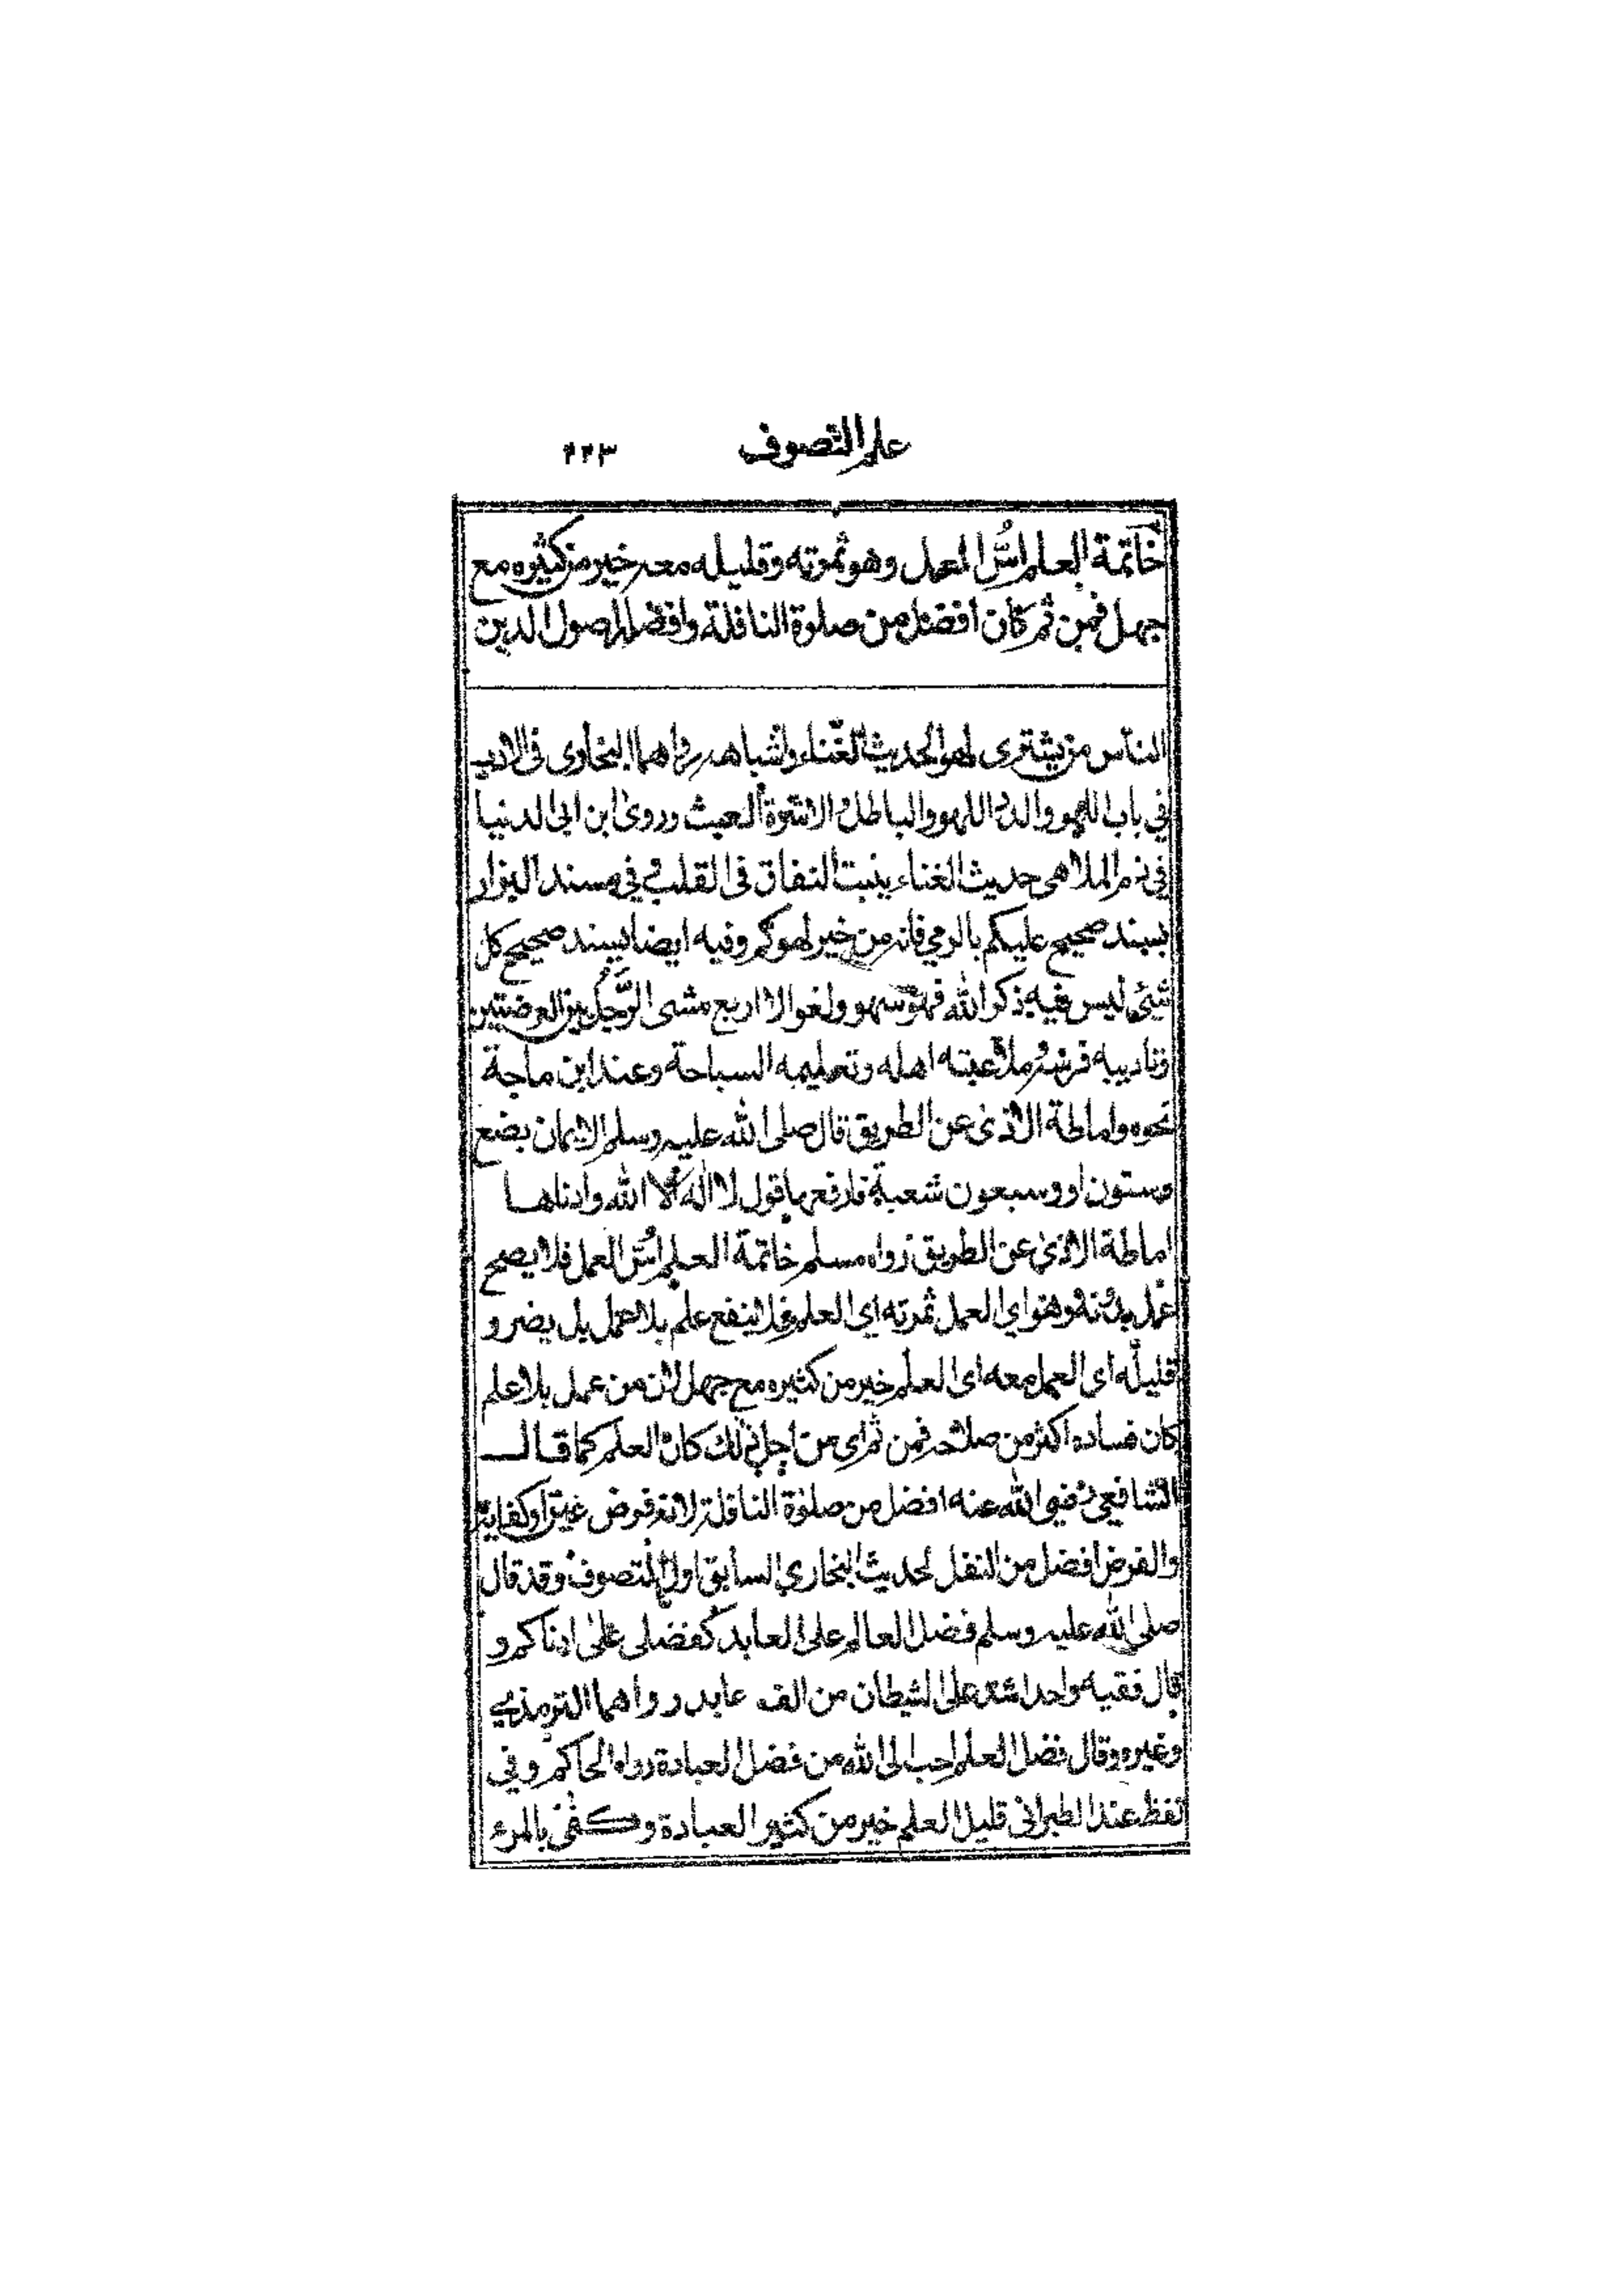 علم التصوف ٢٢٣
خاتمة العلم اسُّ العمل وهو ثمرته وقليله معه خير من كثيره مع
جهل فمن ثم كان افضل من صلوة النافلة وافضله اصول الدين
الناس من يشترى لهو الحديث الغناء واشباهه رواهما البخارى فى الادب
في باب اللهو والدد اللهو والباطل والاشرة العبث وروىٰ ابن ابى الدنيا
في ذم الملاهى حديث الغناء ينبت النفاق فى القلب و في مسند البزار
بسند صحيح عليكم بالرمي فانه من خير لهوكم وفيه ايضا بسند صحيح كل
شيئ ليس فيه ذكر الله فهو سهو ولغو الا اربع مشى الرَّجُل بين العرضتين
وتاديبه فرسه وملاعبته اهله وتعليمه السباحة وعند ابن ماجة
نحوه واماطة الاذىٰ عن الطريق قال صلى الله عليه وسلم الايمان بضع
وستون او وسبعون شعبة فارفعها قول لا اله الا الله وادناهـا
اماطة الاذىٰ عن الطريق رواه مسلم خاتمة العلم اُسّ العمل فلا يصح
عمل بدونه وهو اي العمل ثمرته اي العلم فلا ينفع علم بلا عمل بل يضر و
قليله اى العمل معه اى العلم خير من كثيره مع جهل لان من عمل بلا علم
كان فساده اكثر من صلاحه فمن ثم اى من اجل ذلك كان العلم كما قـال
الشافعي رضي الله عنه افضل من صلوة النافلة لانه فرض عين او كفاية
والفرض افضل من النفل لحديث البخاري السابق اول التصوف وقد قال
صلى الله عليه وسلم فضل العالم على العابد كفضلى علىٰ ادناكم و
قال فقيه واحد اشد على الشيطان من الف عابد رواهما الترمذي
وغيره وقال فضل العلم احب الى الله من فضل العبادة رواه الحاكم وفي
لفظ عند الطبرانى قليل العلم خير من كثير العبادة وكفىٰ بالمرء